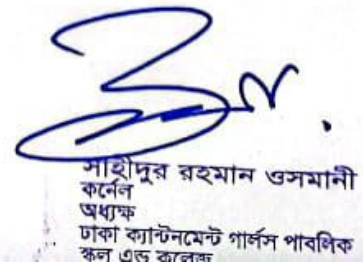 সাহীদুর রহমান ওসমানী
কর্নেল
অধ্যক্ষ
ঢাকা ক্যান্টনমেন্ট গার্লস পাবলিক
স্কুল এন্ড কলেজ